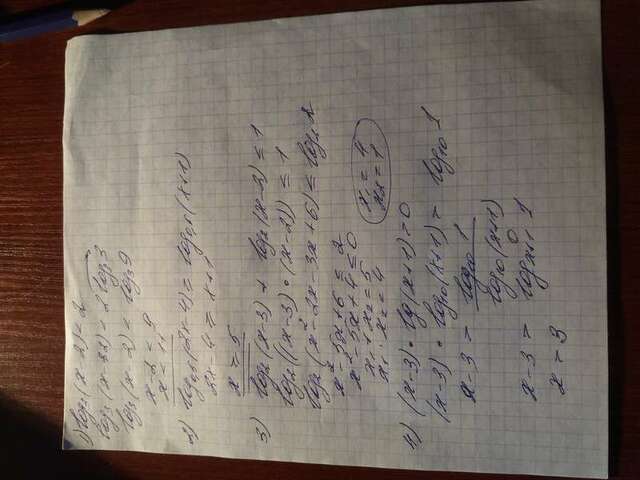 1) log₃(x-2) < 2
log₃(x-2) < 2 log₃3
log₃(x-2) < log₃9
x-2 < 9
x < 11
2) log₀,₅(2x-4) ≥ log₀,₅(x+1)
2x-4 ≥ x+1
x ≥ 5
3) log₂(x-3) + log₂(x-2) ≤ 1
log₂((x-3)·(x-2)) ≤ 1
log₂(x²-2x-3x+6) ≤ log₂2
x²-5x+6 ≤ 2
x²-5x+4 ≤ 0
x₁+x₂=5
x₁·x₂=4
x₁=4
x₂=1
4) (x-3)·lg(x+1)>0
(x-3)·log₁₀(x+1)> log₁₀1
x-3 > log₁₀1
log₁₀(x+1)
0
x-3 > logₓ₊₁1
x > 3